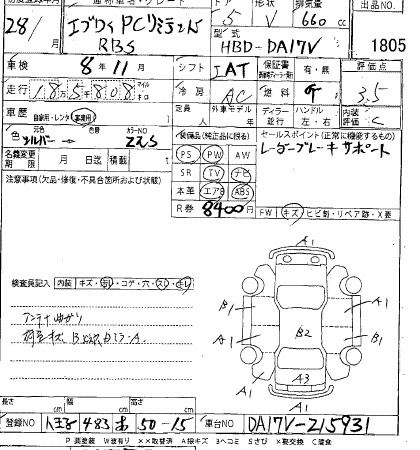 28/ エブリイ PCリミテッド 5 V 660 cc 出品NO.
RBS 型式 HBD-DA17V 1805
車検 8年11月 シフト IAT 保証書 有・無 評価点
走行 185,808 マイル キロ 冷房 AC 燃料 3.5
車歴 自家用・レンタ・事業用 定員 人 外車モデル ディーラー 並行 ハンドル 左・右 内装評価 C
色 元色 シルバー → 色替 カラーNO Z2S 装備品(純正品に限る) セールスポイント(正常に機能するもの)
名義変更期限 月 日迄 積載 t PS PW AW レーダーブレーキサポート
注意事項(欠品・修復・不具合箇所および状態) SR TV ナビ
本革 エアB ABS
R券 8400円 FW キズ・ヒビ割・リペア跡・X要
A1
検査員記入 内装 キズ・汚レ・コゲ・穴・スレ・キレ
B1 A1
アンテナ曲がり
A1 B2 B1
A1 A3 A1
長さ cm 幅 cm 高さ cm
登録NO 八王子 483 あ 50-15 車台NO DA17V-215931
P 要塗装 W 波有り ××取替済 A 線キズ B ヘコミ S さび X 要交換 C 腐食